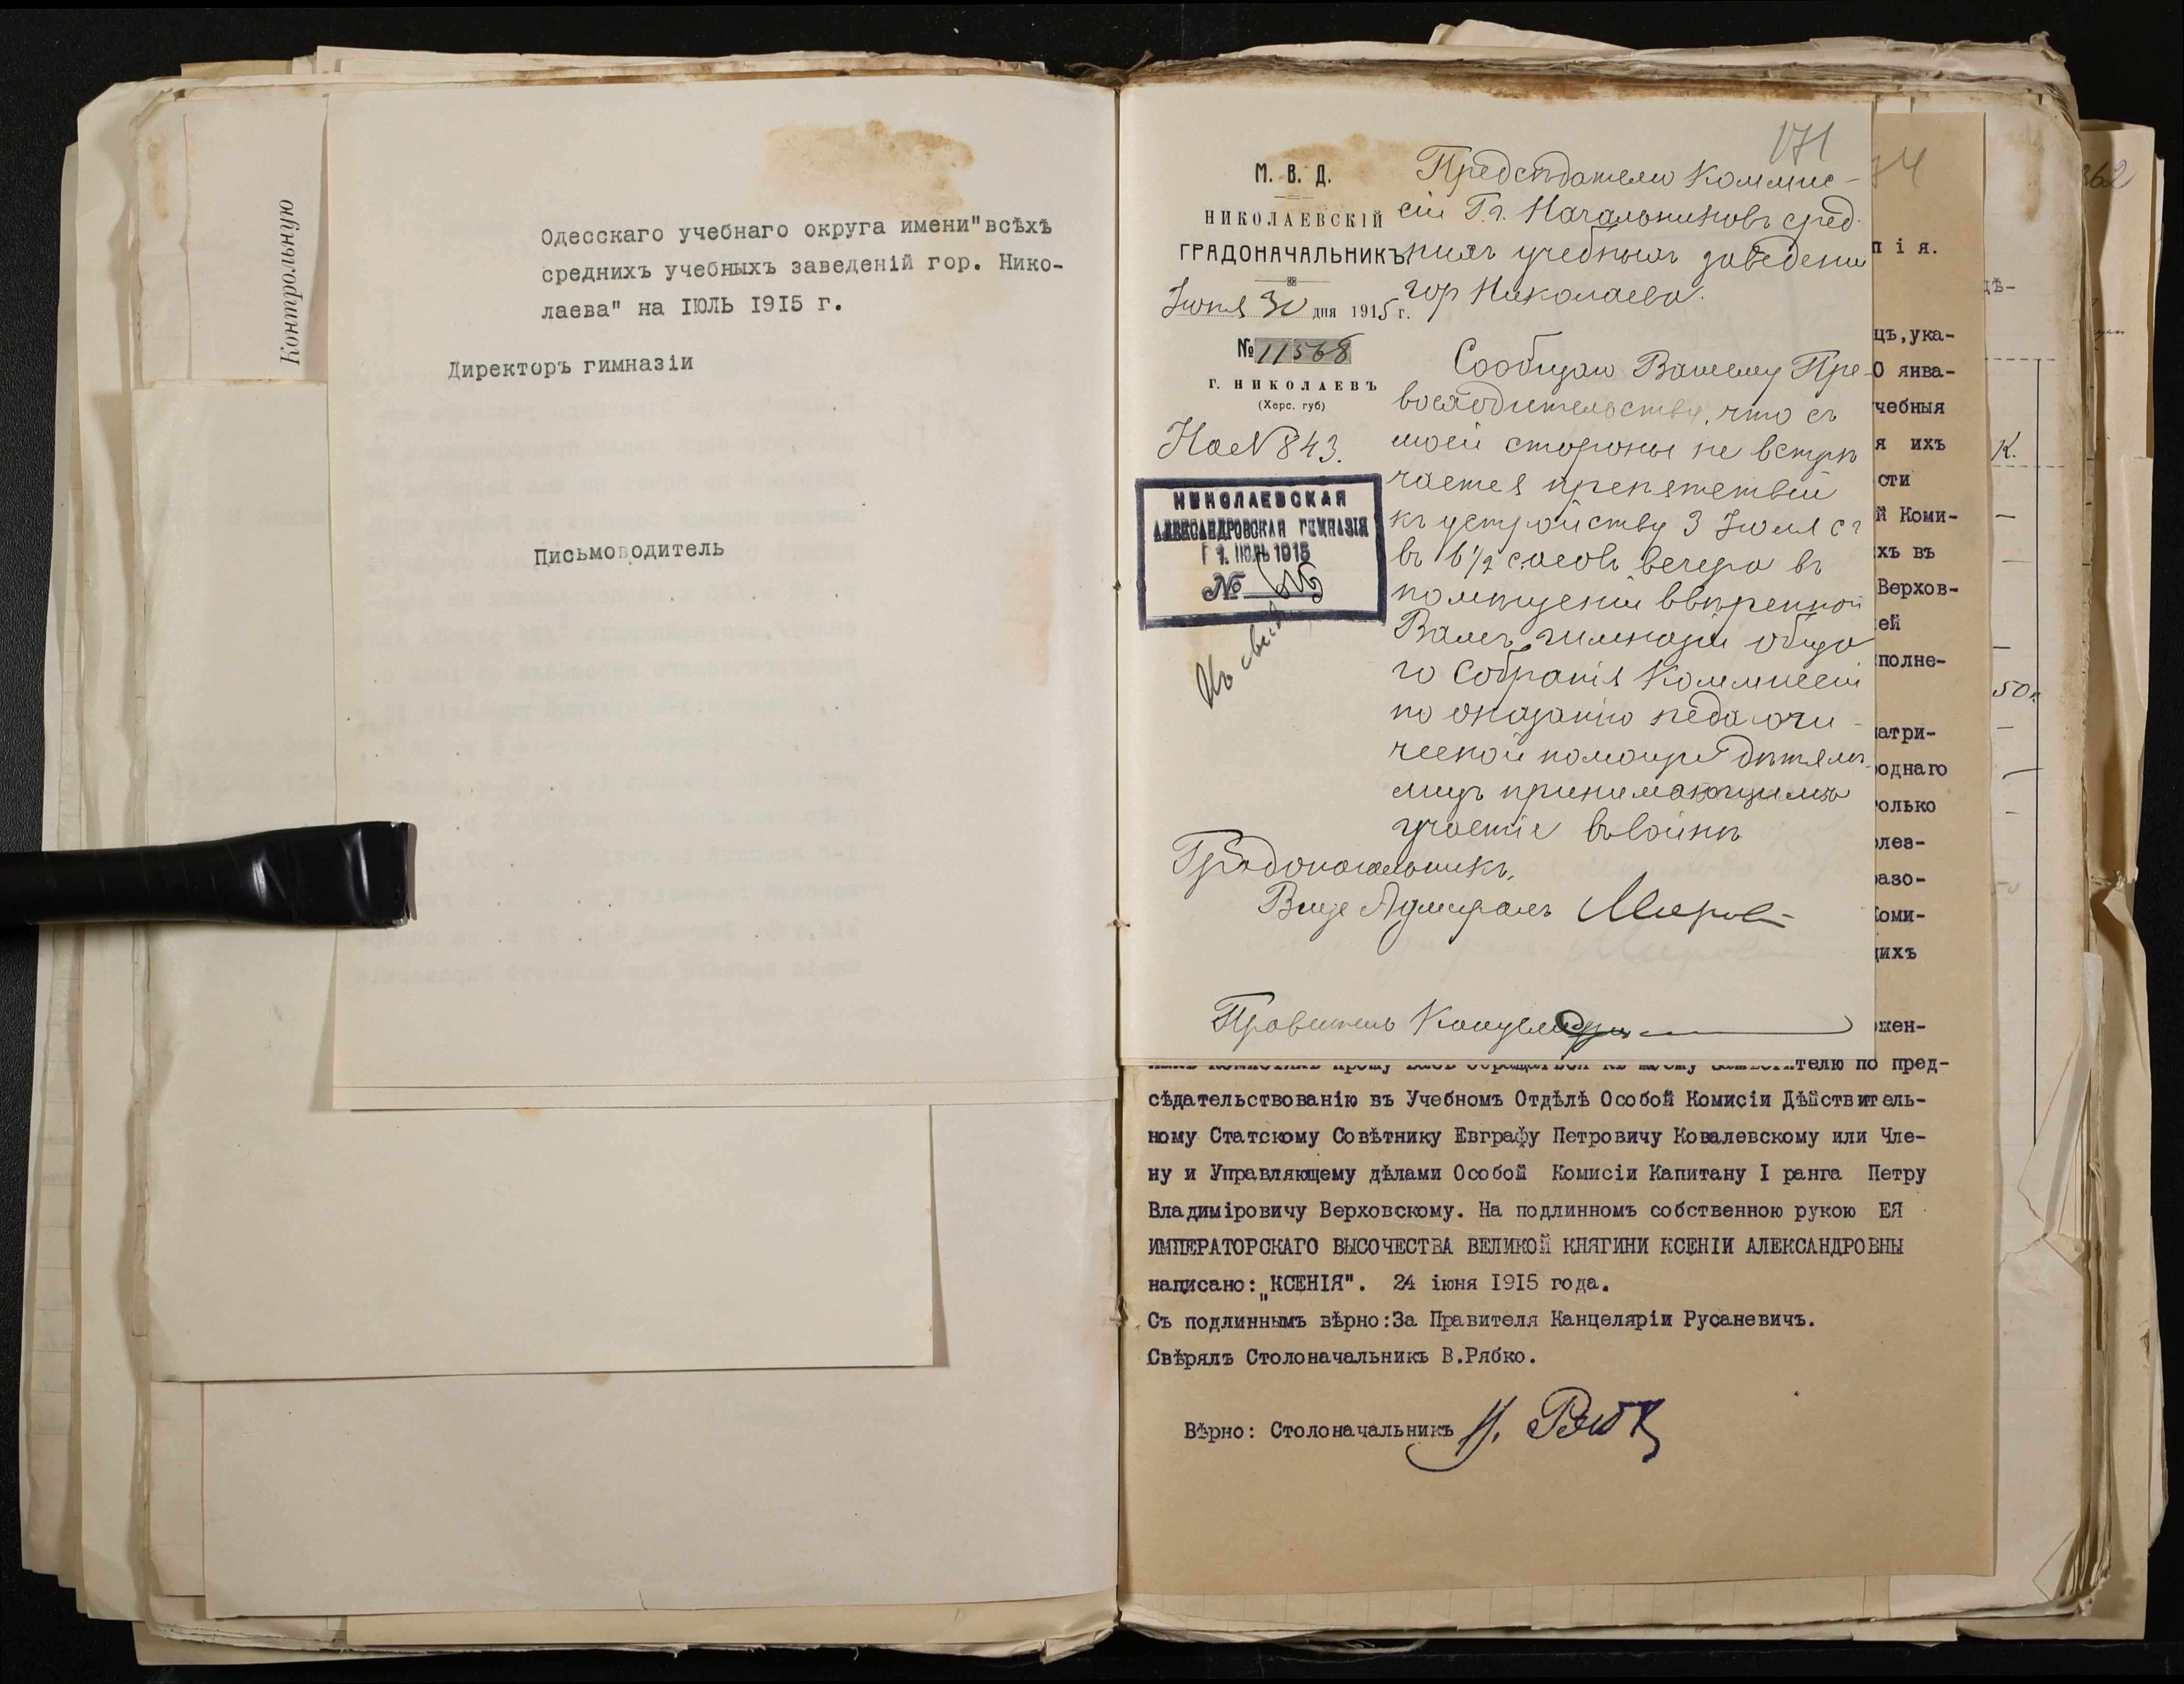 Контрольную
Одесскаго учебнаго округа имени"всѣхъ
среднихъ учебныхъ заведеній гор. Нико-
лаева" на IЮЛЬ I9I5 г.
Директоръ гимназіи
Письмоводитель
171
М. В. Д.
НИКОЛАЕВСКІЙ
ГРАДОНАЧАЛЬНИКЪ
Іюня 30 дня 1915 г.
№ 11568
Г. НИКОЛАЕВЪ
(Херс. губ)
На № 843.
НИКОЛАЕВСКАЯ
АЛЕКСАНДРОВСКАЯ ГИМНАЗІЯ
1. ІЮЛЬ 1915
№
Предсѣдателю Коммис-
сіи Гг. Начальниковъ сред-
нихъ учебныхъ заведеній
гор Николаева.
Сообщаю Вашему Пре-
восходительству, что съ
моей стороны не встрѣ
чается препятствій
къ устройству 3 Іюля с г
въ 6 1/2 часовъ вечера въ
помѣщеніи ввѣренной
Вамъ гимназіи обща
го Собранія Коммиссіи
по оказанію педагоги-
ческой помощи дѣтямъ
лицъ принимающимъ
участіе въ войнѣ
Градоначальникъ,
Вице Адмиралъ
Правитель Канцеляріи
34
пія.
цъ,ука-
О янва-
чебныя
я ихъ
сти
й Коми-
хъ въ
Верхов-
ей
полне-
атри-
роднаго
олько
олез-
азо-
Коми-
ихъ
жен-
телю по пред-
сѣдательствованію въ Учебномъ Отдѣлѣ Особой Комисіи Дѣйствитель-
ному Статскому Совѣтнику Евграфу Петровичу Ковалевскому или Чле-
ну и Управляющему дѣлами Особой Комисіи Капитану I ранга Петру
Владиміровичу Верховскому. На подлинномъ собственною рукою ЕЯ
ИМПЕРАТОРСКАГО ВЫСОЧЕСТВА ВЕЛИКОЙ КНЯГИНИ КСЕНІИ АЛЕКСАНДРОВНЫ
написано:„КСЕНІЯ". 24 іюня I9I5 года.
Съ подлиннымъ вѣрно:За Правителя Канцеляріи Русаневичъ.
Свѣрялъ Столоначальникъ В.Рябко.
Вѣрно: Столоначальникъ
362
дѣ-
К.
50